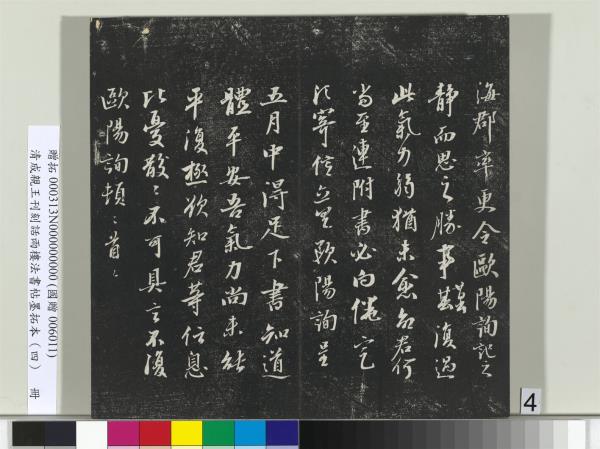 海郡率更令歐陽詢記之
靜而思之勝事甚復過
此氣力弱猶未愈君何
當至速附書必向
寄信立 歐陽詢呈
五月中得足下書知道
體平安吾氣力尚未能
平復極欲知君等信息
比憂散〻不可具言不復
歐陽詢頓〻首〻
贈拓 000313N000000000 (國贈 006011)
清成親王刊刻話雨樓法書帖墨拓本(四) 冊
4